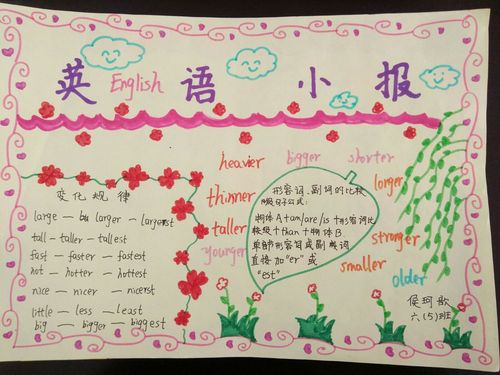 英 English 语 小 报
heavier bigger shorter
thinner
taller
younger
lorger
stronger
smaller
older
变化规律
large — larger — largerst
tall — taller — tallest
fast — faster — fastest
hot — hotter — hottest
nice — nicer — nicerst
little — less — least
big — bigger — biggest
形容词、副词的比较
级句子公式：
物体A+am/are/is+形容词比
较级+than+物体B.
单部形容词或副词
直接加"er"或
"est"
侯珂歆
六(5)班